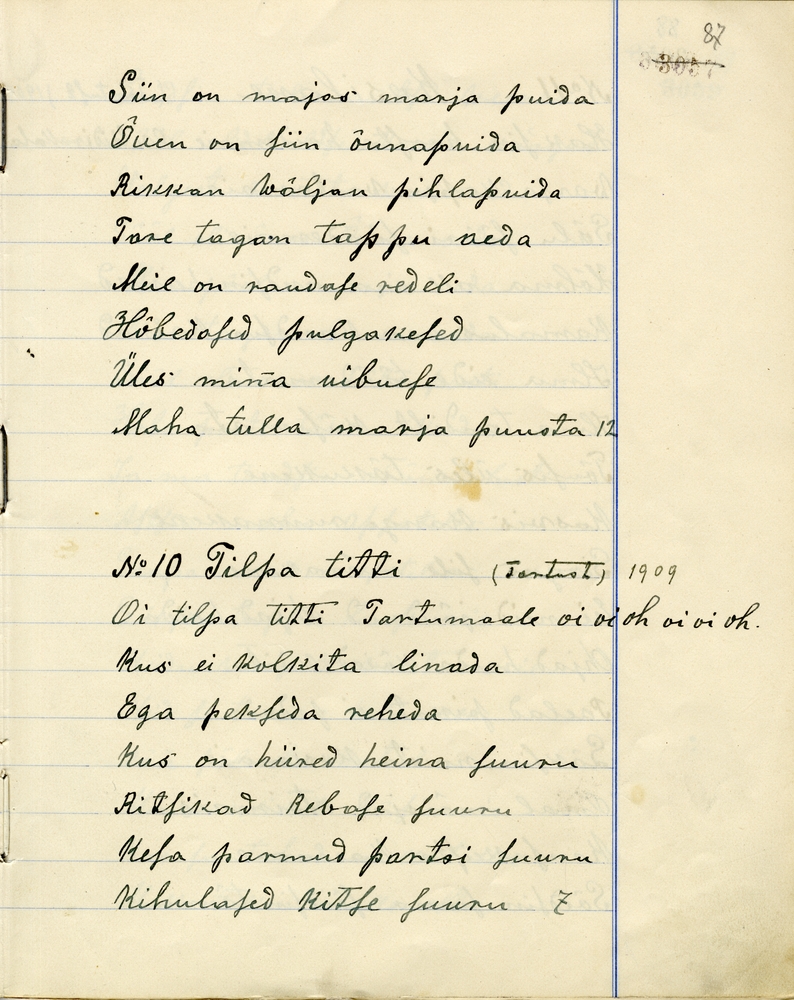 87
3057
Siin on majas marja puida
Õuen on siin õunapuida
Rikkan wäljan pihlapuida
Tare tagan tappu aeda
Meil on raudase redeli
Hõbedased pulgakesed
Üles minna uibuese
Maha tulla marja puusta 12
No 10 Tilpa titti (Tartust) 1909
Oi tilpa titti Tartumaale oi oi oh oi oi oh.
Kus ei kolkita linada
Ega pekseda reheda
Kus on hiired heina suuru
Ritsikad Rebase suuru
Kesa parmud partsi suuru
Kihulased Kitse suuru 7